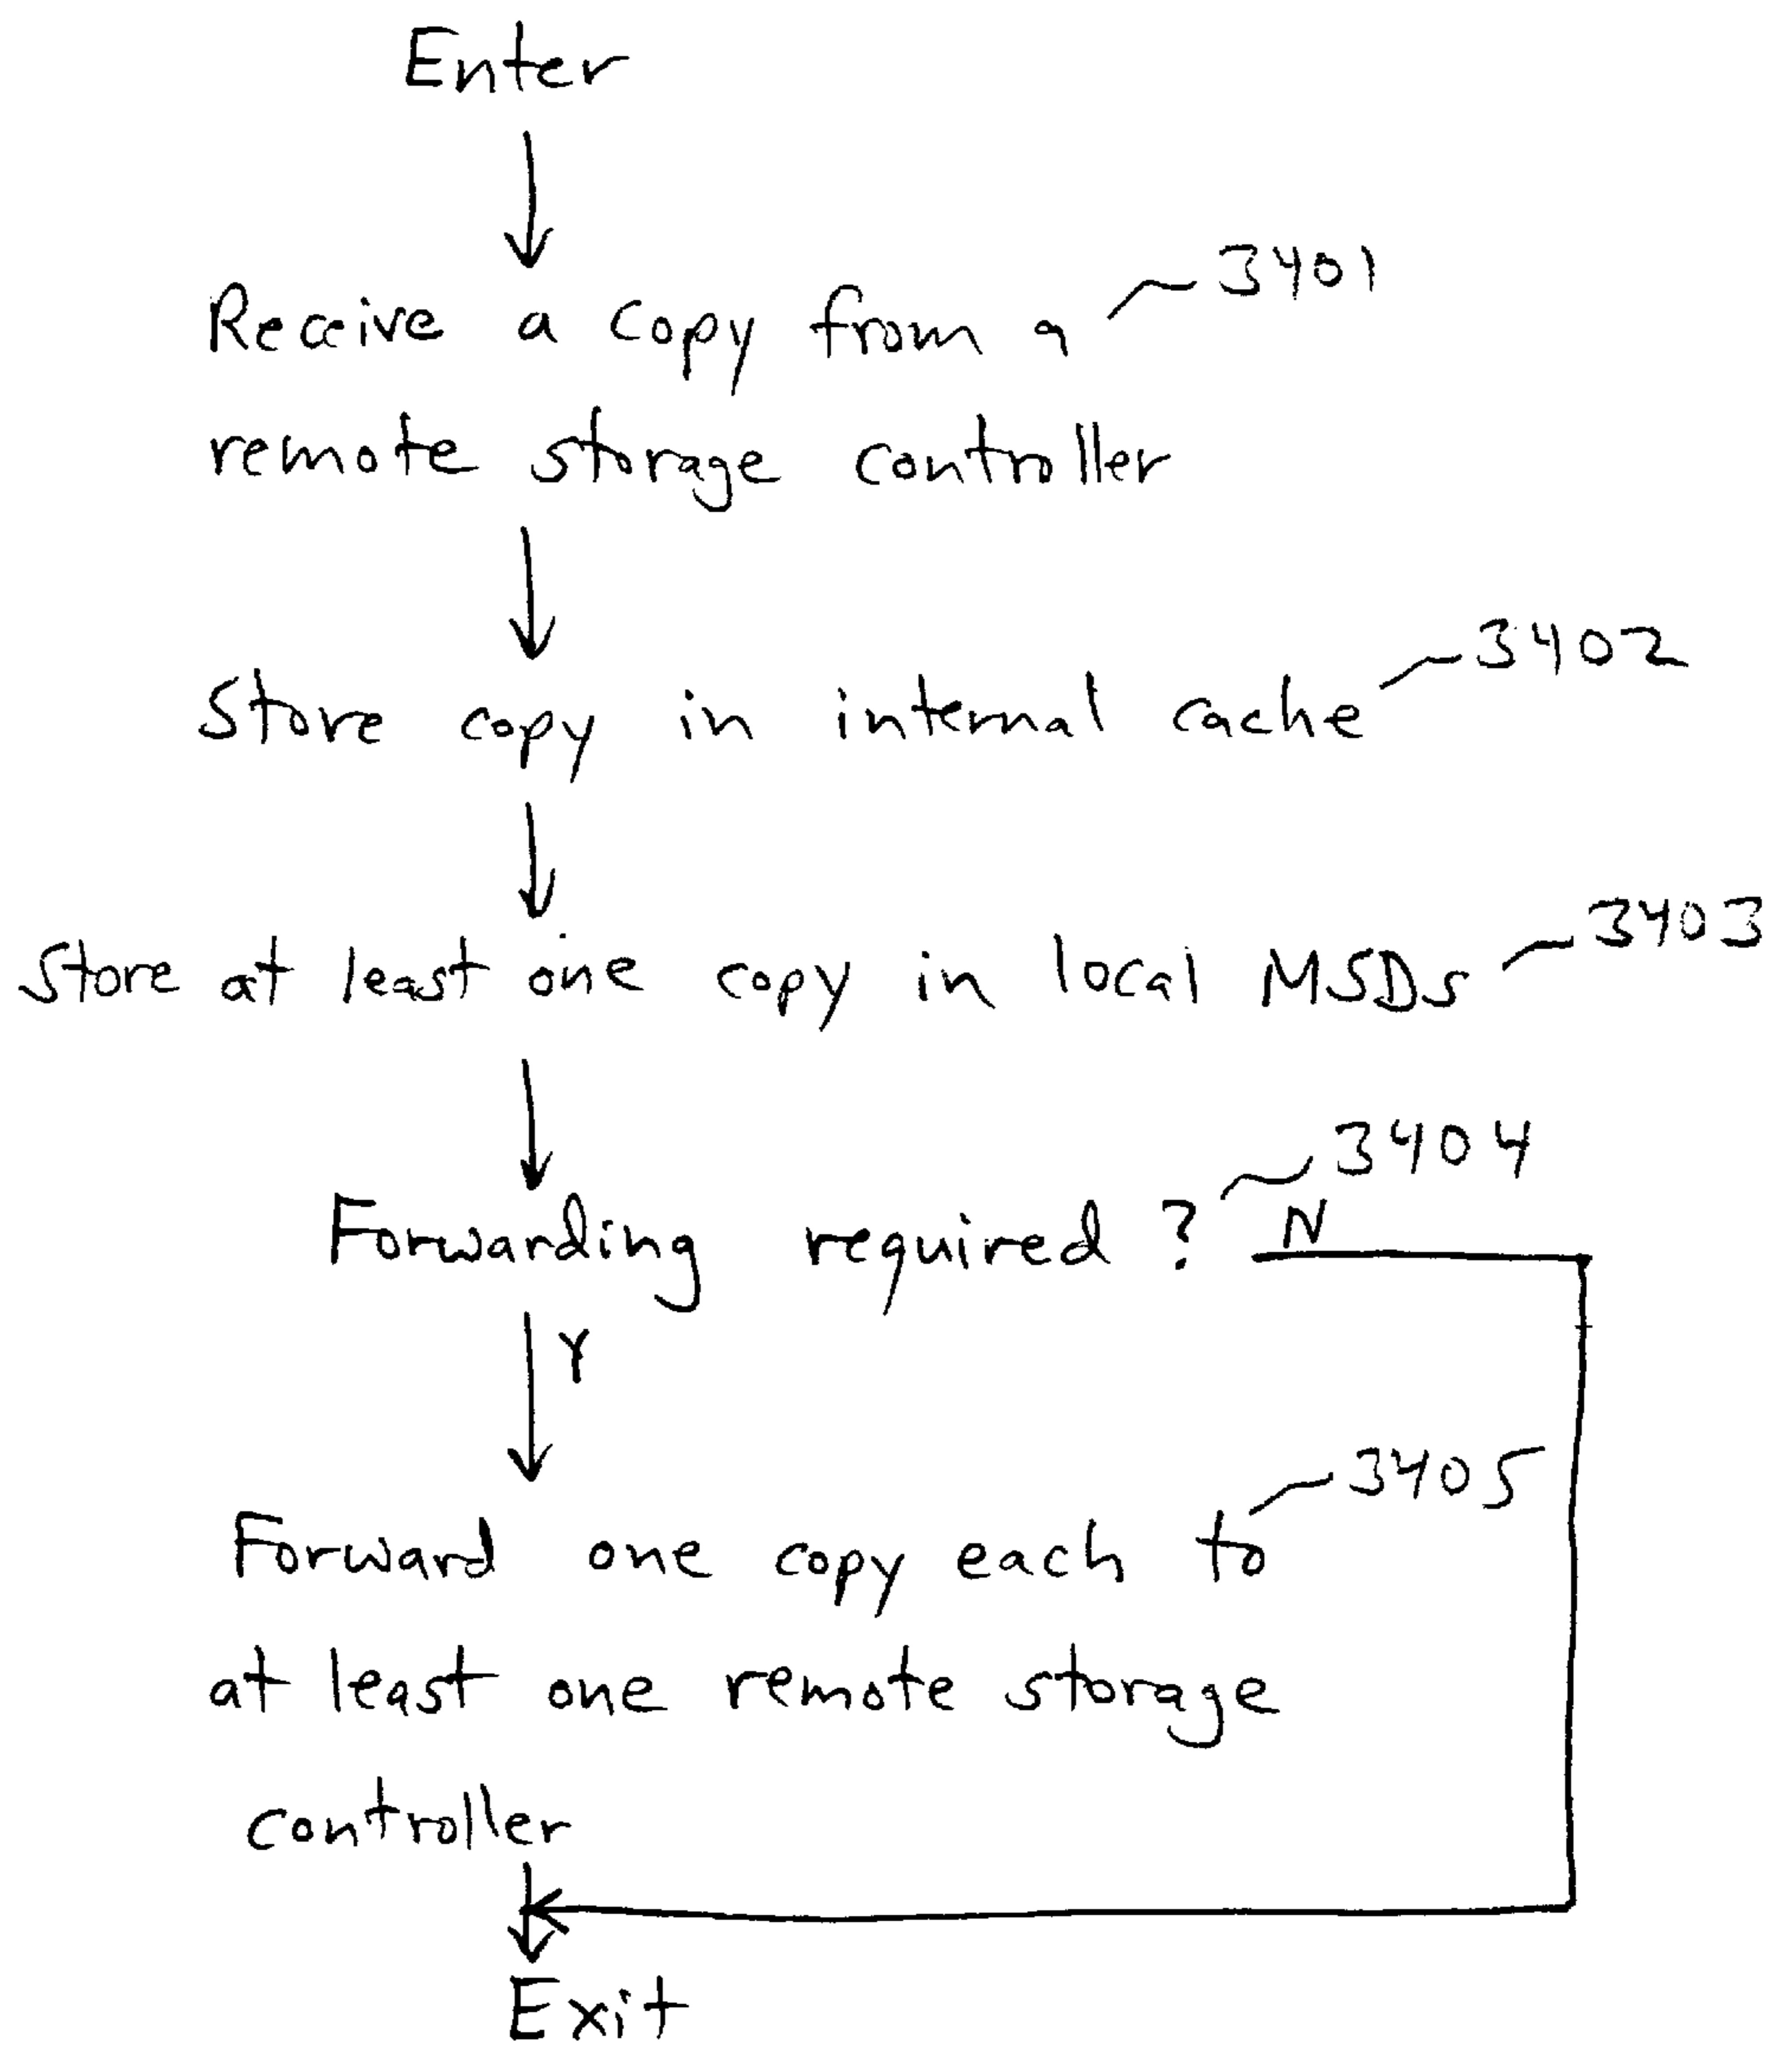 Enter
3401
Receive a copy from a
remote storage controller
3402
Store copy in internal cache
3403
Store at least one copy in local MSDs
3404
Forwarding required ? N
Y
3405
Forward one copy each to
at least one remote storage
controller
Exit